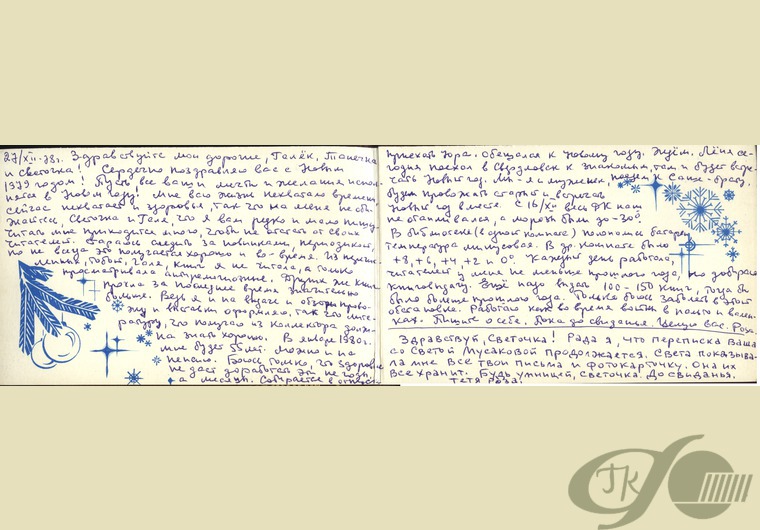 27/XII-78г. Здравствуйте мои дорогие, Галёк, Танечка
и Светочка! Сердечно поздравляю вас с Новым
1979 годом! Пусть все ваши мечты и желания испол-
нятся в Новом году! Мне всю жизнь нехватало времени,
сейчас нехватает и здоровья, так что на меня не оби-
жайтесь, Светочка и Галя, что я вам редко и мало пишу.
Читать мне приходится много, чтобы не отстать от своих
читателей. Стараюсь следить за новинками, периодикой,
но не всегда это получается хорошо и во-время. Из перечис-
ленных, тобой, Галя, книг я не читала, а только
просматривала антирелигиозные. Других же книг
прочла за последнее время значительно
больше. Ведь я и на выдаче и обзоры прово-
жу и выставки оформляю, так что лите-
ратуру, что получаю из коллектора должна
знать хорошо. В январе 1980г.
мне будет 55 лет. Можно и на
пенсию. Боюсь только, что здоровье
не даст доработать эти не годы,
а месяцы. Собирается в отпуск
приехать Юра. Обещался к Новому году. Ждём. Лёня се-
годня поехал в Свердловск к знакомым, там и будет встре-
чать Новый год. Мы - я и мужем, поедем к Саше - брату.
Будем провожать старый и встречать
Новый год вместе. С 16/XII весь ДК наш
не отапливался, а морозы были до -30°.
В библиотеке (в одной комнате) лопнули батареи,
температура минусовая. В др. комнате было
+8, +6, +4, +2 и 0°. Каждый день работала,
читателей у меня не меньше прошлого года, но добираю
книговыдачу. Ещё надо выдать 100-150 книг, тогда бы
было больше прошлого года. Только боюсь заболеть в этой
обстановке. Работаю как во время войны в пальто и вален-
ках. Пишите о себе. Пока до свиданья. Целую вас. Роза.
Здравствуй, Светочка! Рада я, что переписка Ваша
со Светой Мусаковой продолжается. Света показыва-
ла мне все твои письма и фотокарточку. Она их
все хранит. Будь умницей, Светочка. До свиданья.
тетя Роза.
ГК